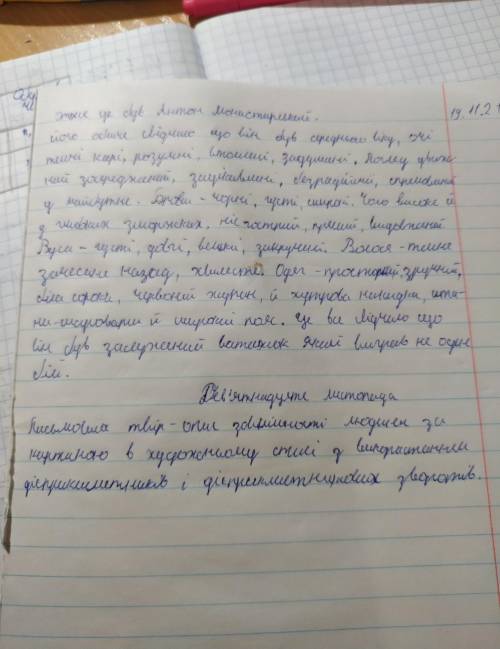 отже це був Антон Монастирський. 19.11.2
його обличчя свідчило що він був середнього віку, очі
темні карі, розумні, втомлені, задумані. Погляд уваж-
ний зосереджений, зацікавлений, безрадісний, спрямований
у майбутнє. Брови - чорні, густі, широкі. Чоло високе й
у глибоких зморшках, ніс гострий, прямий, видовжений
Вуса - густі, довгі, великі, закручені. Волося - темне
зачесане назад, хвилясте. Одяг - просторий, зручний,
біла сорочка, червоний жупан, й хутрова накидка, шта-
ни-шаровари й широкий пояс. Це все свідчило що
він був заслужений ватажок який виграв не один
бій.
Дев'ятнадцяте листопада
Письмовий твір - опис зовнішності людини за
картиною в художньому стилі з використанням
дієприкметників і дієприкметникових зворотів.